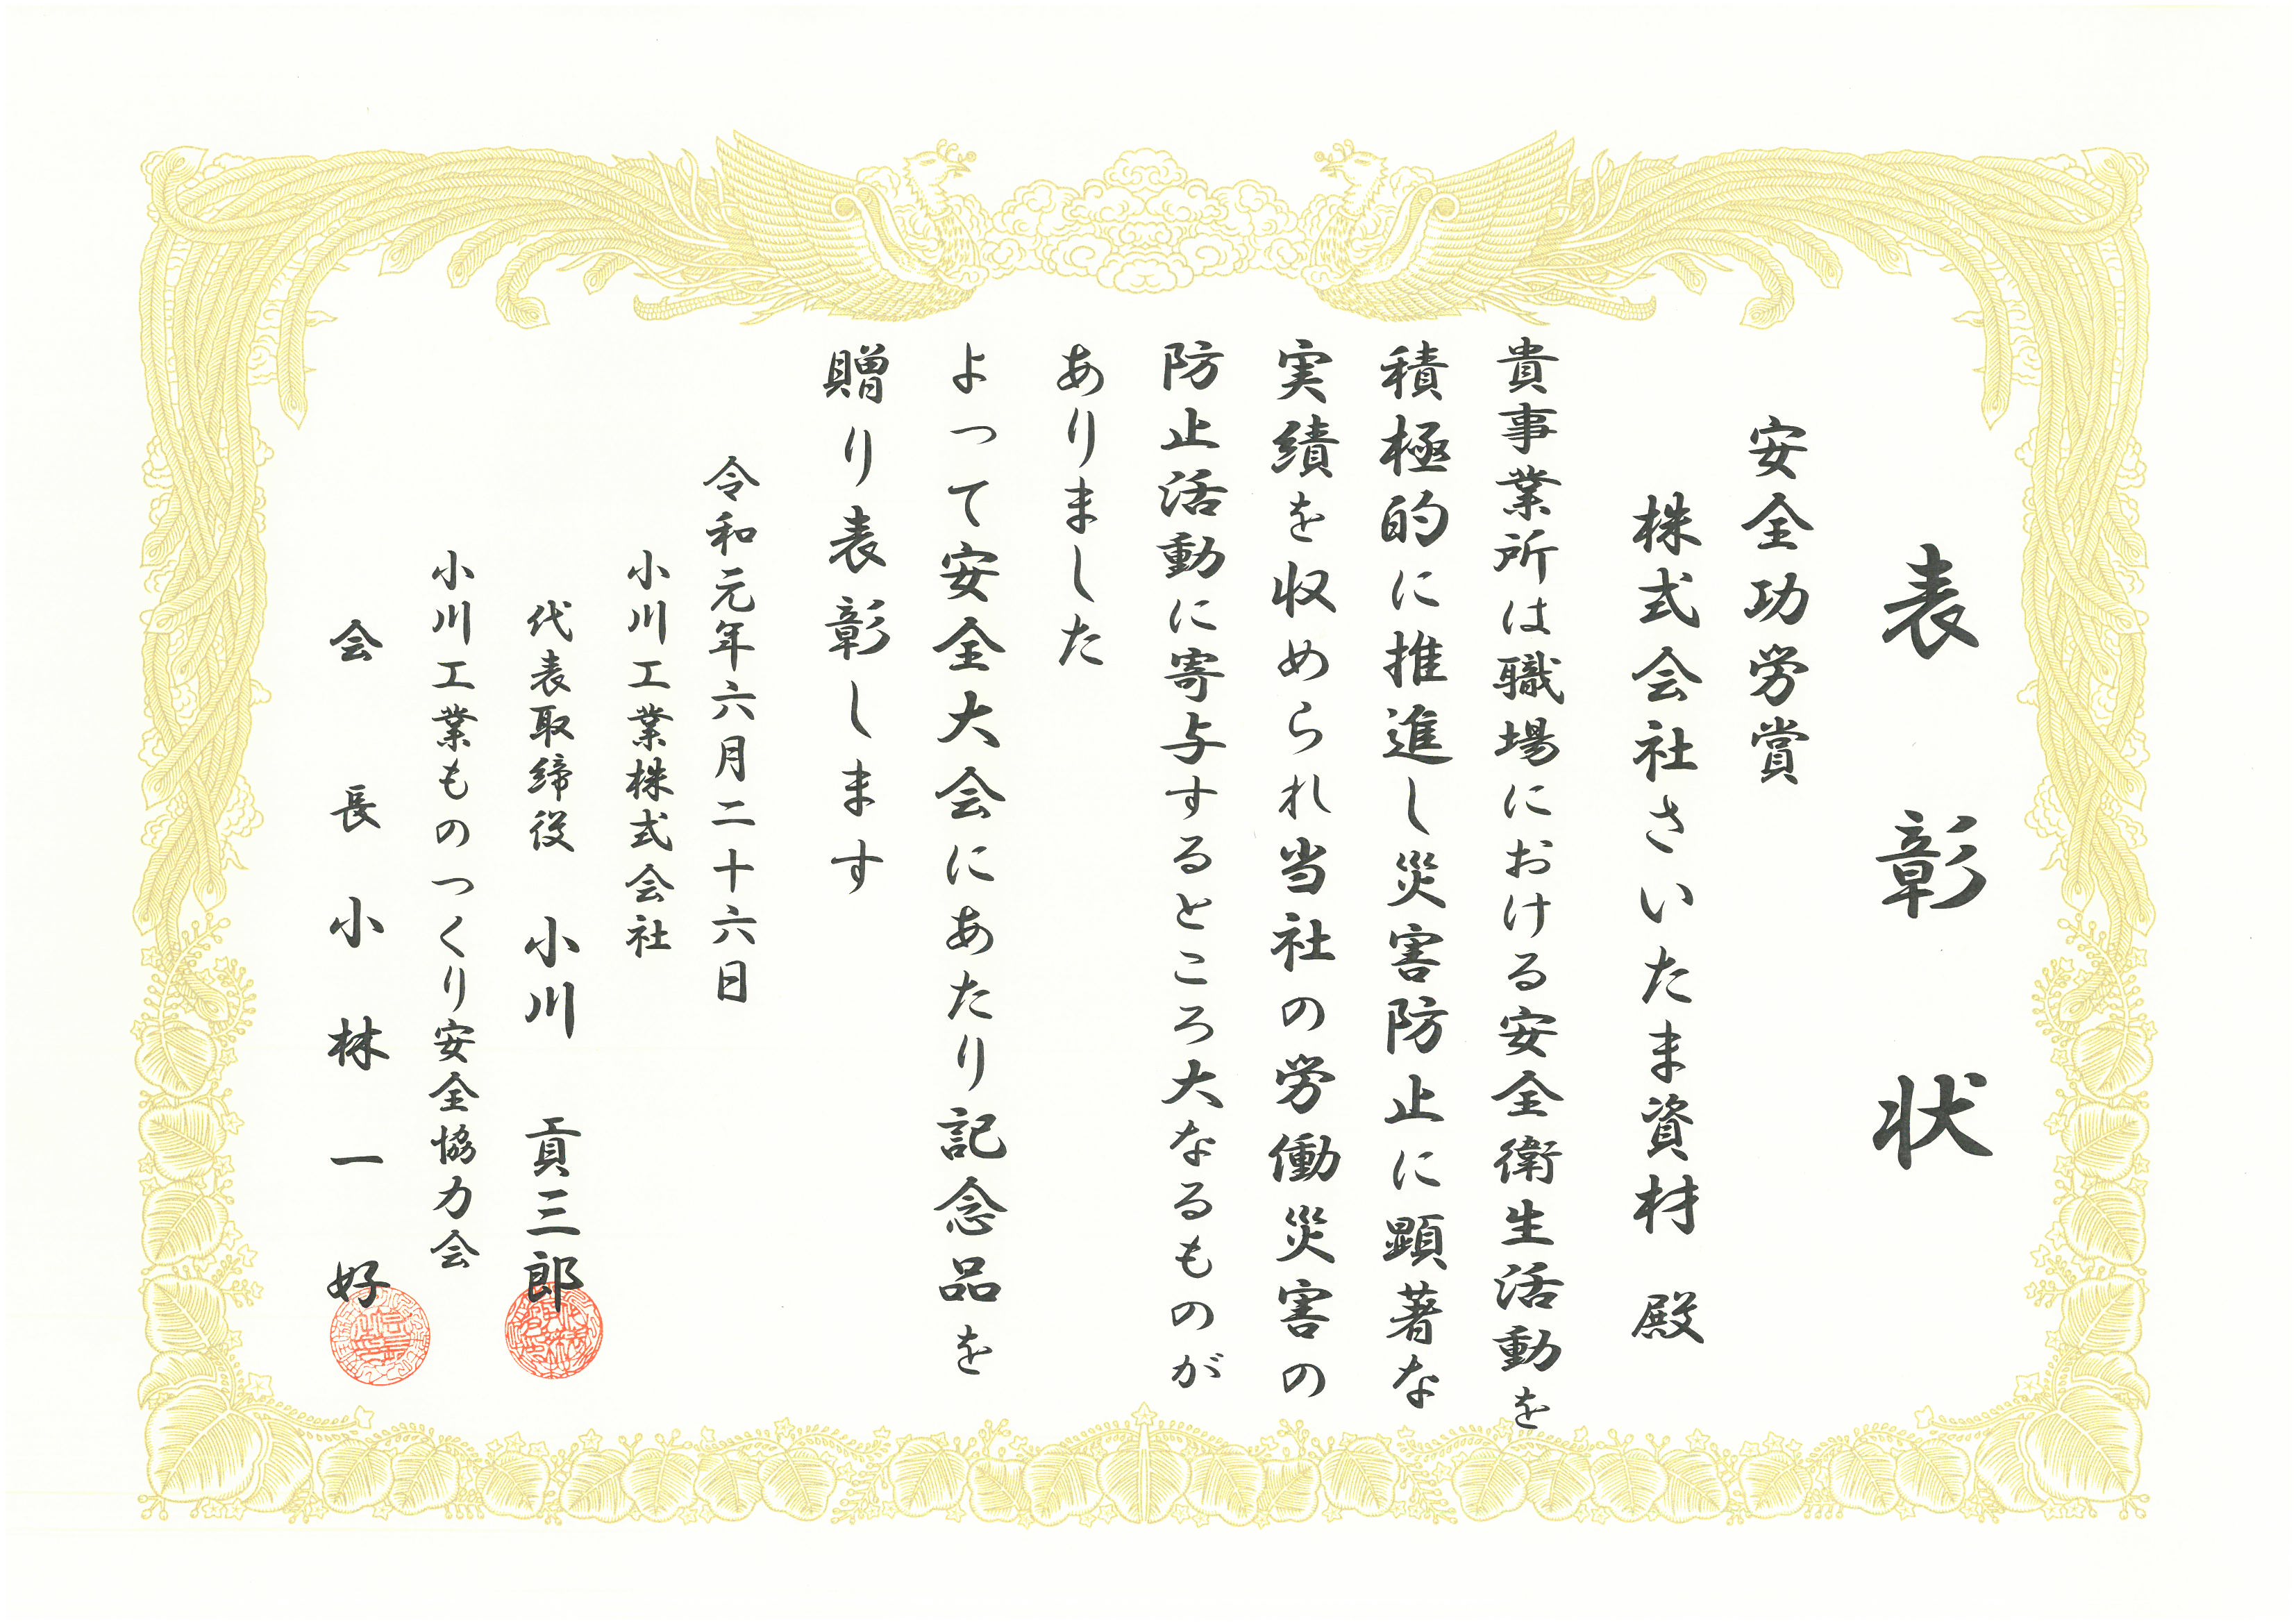 表彰状
安全功労賞
株式会社さいたま資材 殿
貴事業所は職場における安全衛生活動を
積極的に推進し災害防止に顕著な
実績を収められ当社の労働災害の
防止活動に寄与するところ大なるものが
ありました
よって安全大会にあたり記念品を
贈り表彰します
令和元年六月二十六日
小川工業株式会社
代表取締役 小川 貢三郎
小川工業ものつくり安全協力会
会長 小林一好